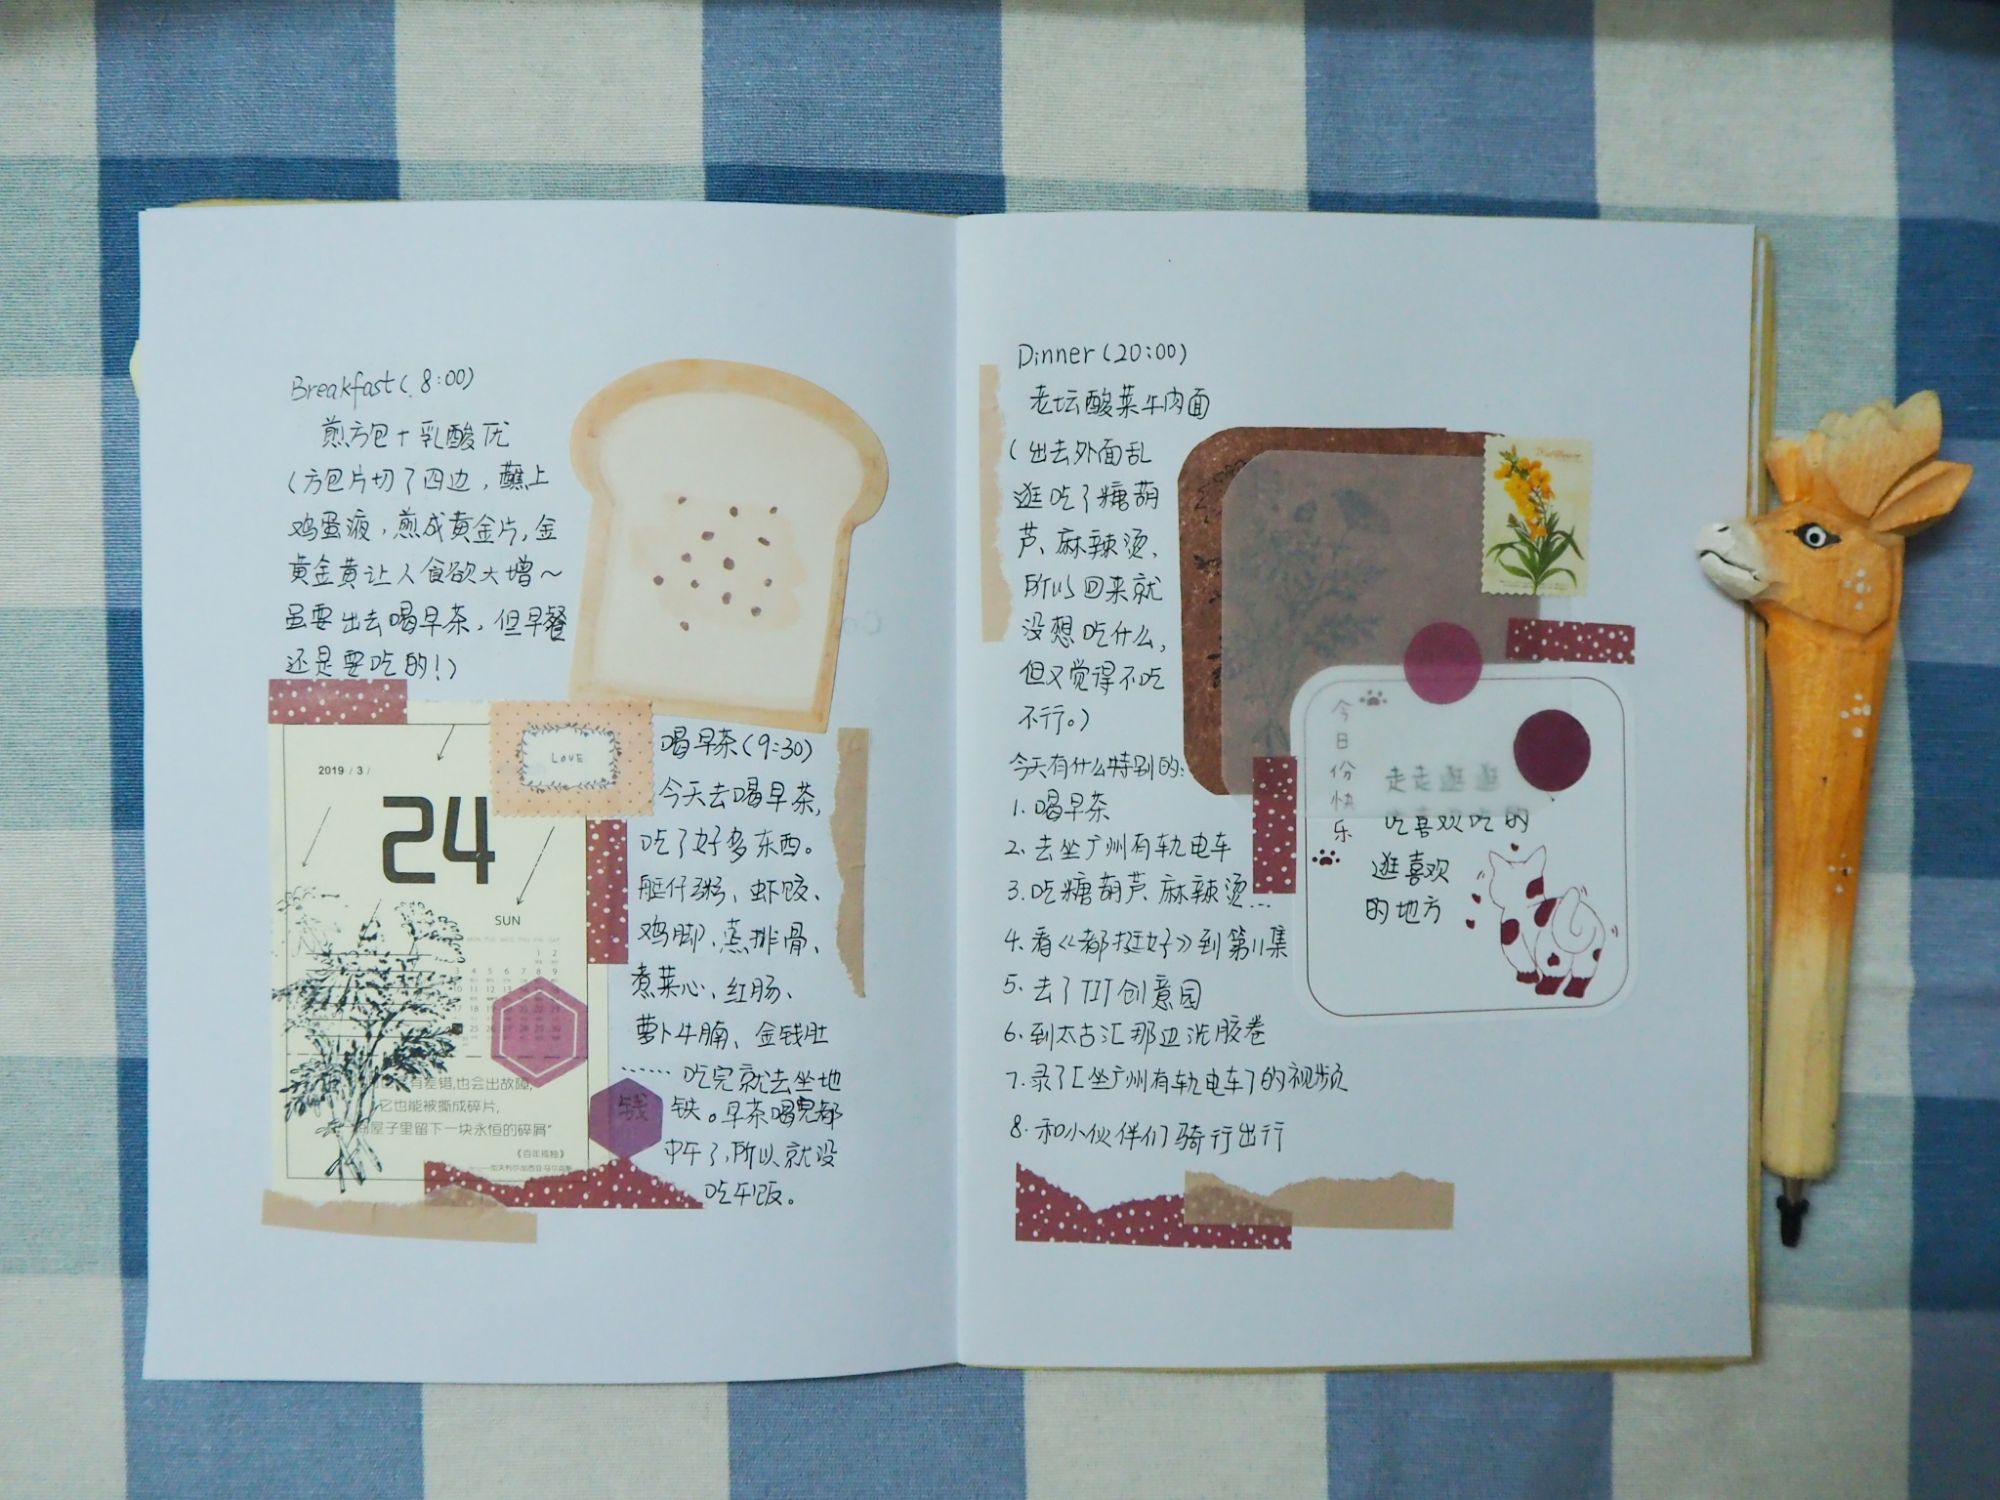 Breakfast(8:00)
煎方包+乳酸
(方包片切了四边,蘸上
鸡蛋液,煎成黄金片,金
黄金黄让人食欲大增~
虽要出去喝早茶,但早餐
还是要吃的!)
LOVE
2019 / 3 /
24
SUN
有差错,也会出故障,
它也能被撕成碎片,
屋子里留下一块永恒的碎屑”
《百年孤独》
喝早茶(9:30)
今天去喝早茶,
吃了好多东西。
艇仔粥、虾饺、
鸡脚、蒸排骨、
煮菜心、红肠、
萝卜牛腩、金钱肚
……吃完就去坐地
铁。早茶喝完都
中午了,所以就没
吃午饭。
Dinner(20:00)
老坛酸菜牛肉面
(出去外面乱
逛吃了糖葫
芦、麻辣烫、
所以回来就
没想吃什么,
但又觉得不吃
不行。)
今天有什么特别的:
1. 喝早茶
2. 去坐广州有轨电车
3. 吃糖葫芦、麻辣烫...
4. 看《都挺好》到第11集
5. 去了TIT创意园
6. 到太古汇那边洗胶卷
7. 录了[坐广州有轨电车]的视频
8. 和小伙伴们骑行出行
今日份快乐
走走逛逛
吃喜欢吃的
逛喜欢
的地方